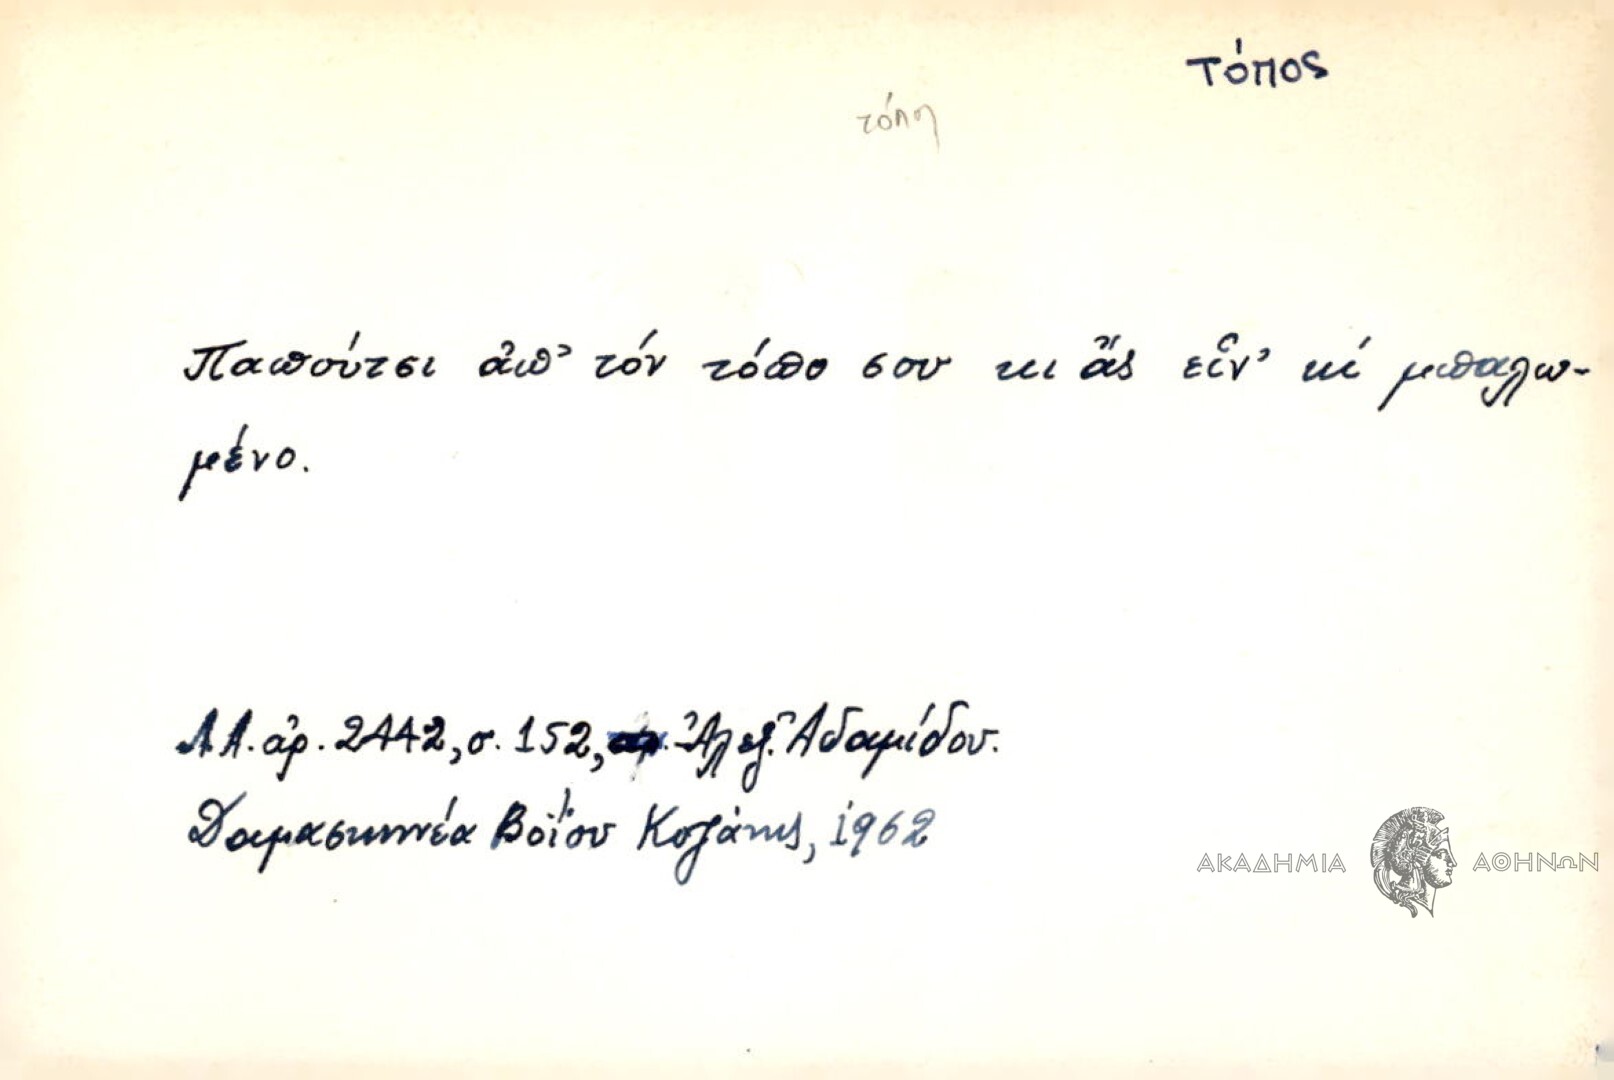 τόπος
τόπη
Παπούτσι ἀπ' τόν τόπο σου κι ἄς εἶν' κι μπαλω-
μένο.
Λ.Α. ἀρ. 2442, σ. 152, Ἀλεξ. Ἀδαμίδου.
Δαμασκηνέα Βοΐου Κοζάνης, 1962
ΑΚΑΔΗΜΙΑ ΑΘΗΝΩΝ